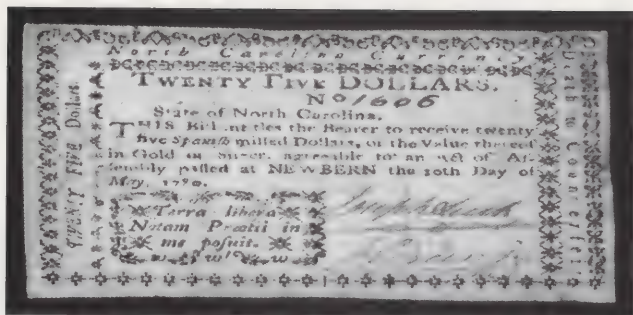 North Carolina Currency.
TWENTY FIVE DOLLARS.
No 1606
State of North Carolina.
THIS Bill entitles the Bearer to receive twenty
five Spanish milled Dollars, or the Value thereof
in Gold or Silver, agreeable to an Act of As-
sembly passed at NEWBERN the 10th Day of
May, 1780.
Terra libera
Notam Pretii in
me posuit.
TWENTY FIVE Dollars.
Death to Counterfeit